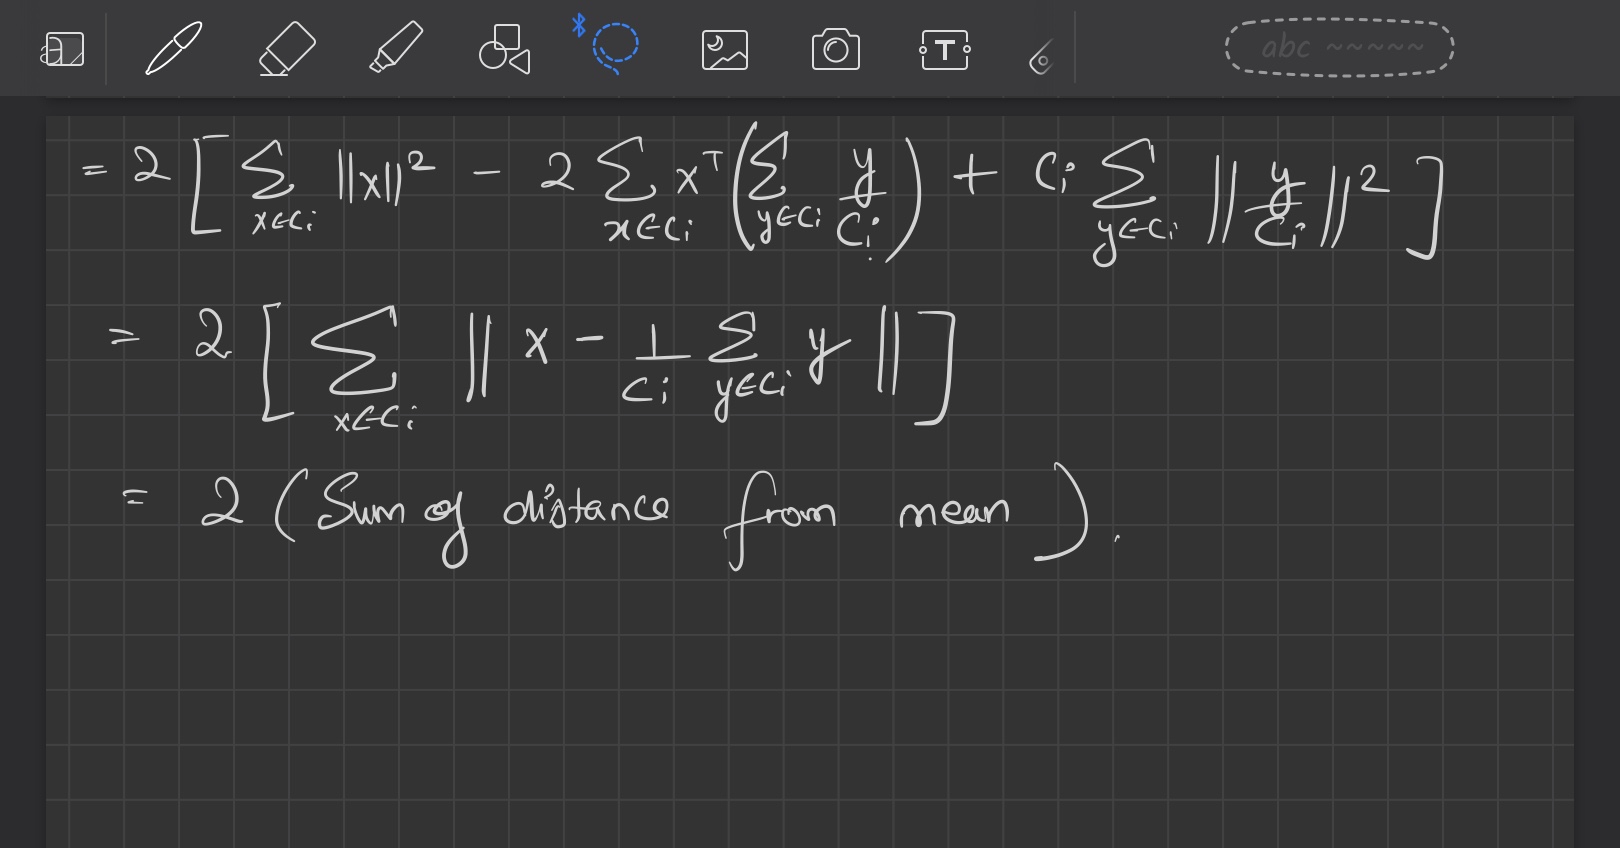 abc ~~~~~
T
= 2 [ ∑_{x∈Cᵢ} ||x||² - 2 ∑_{x∈Cᵢ} xᵀ ( ∑_{y∈Cᵢ} y/Cᵢ ) + Cᵢ ∑_{y∈Cᵢ} || y/Cᵢ ||² ]
= 2 [ ∑_{x∈Cᵢ} || x - 1/Cᵢ ∑_{y∈Cᵢ} y || ]
= 2 (Sum of distance from mean).